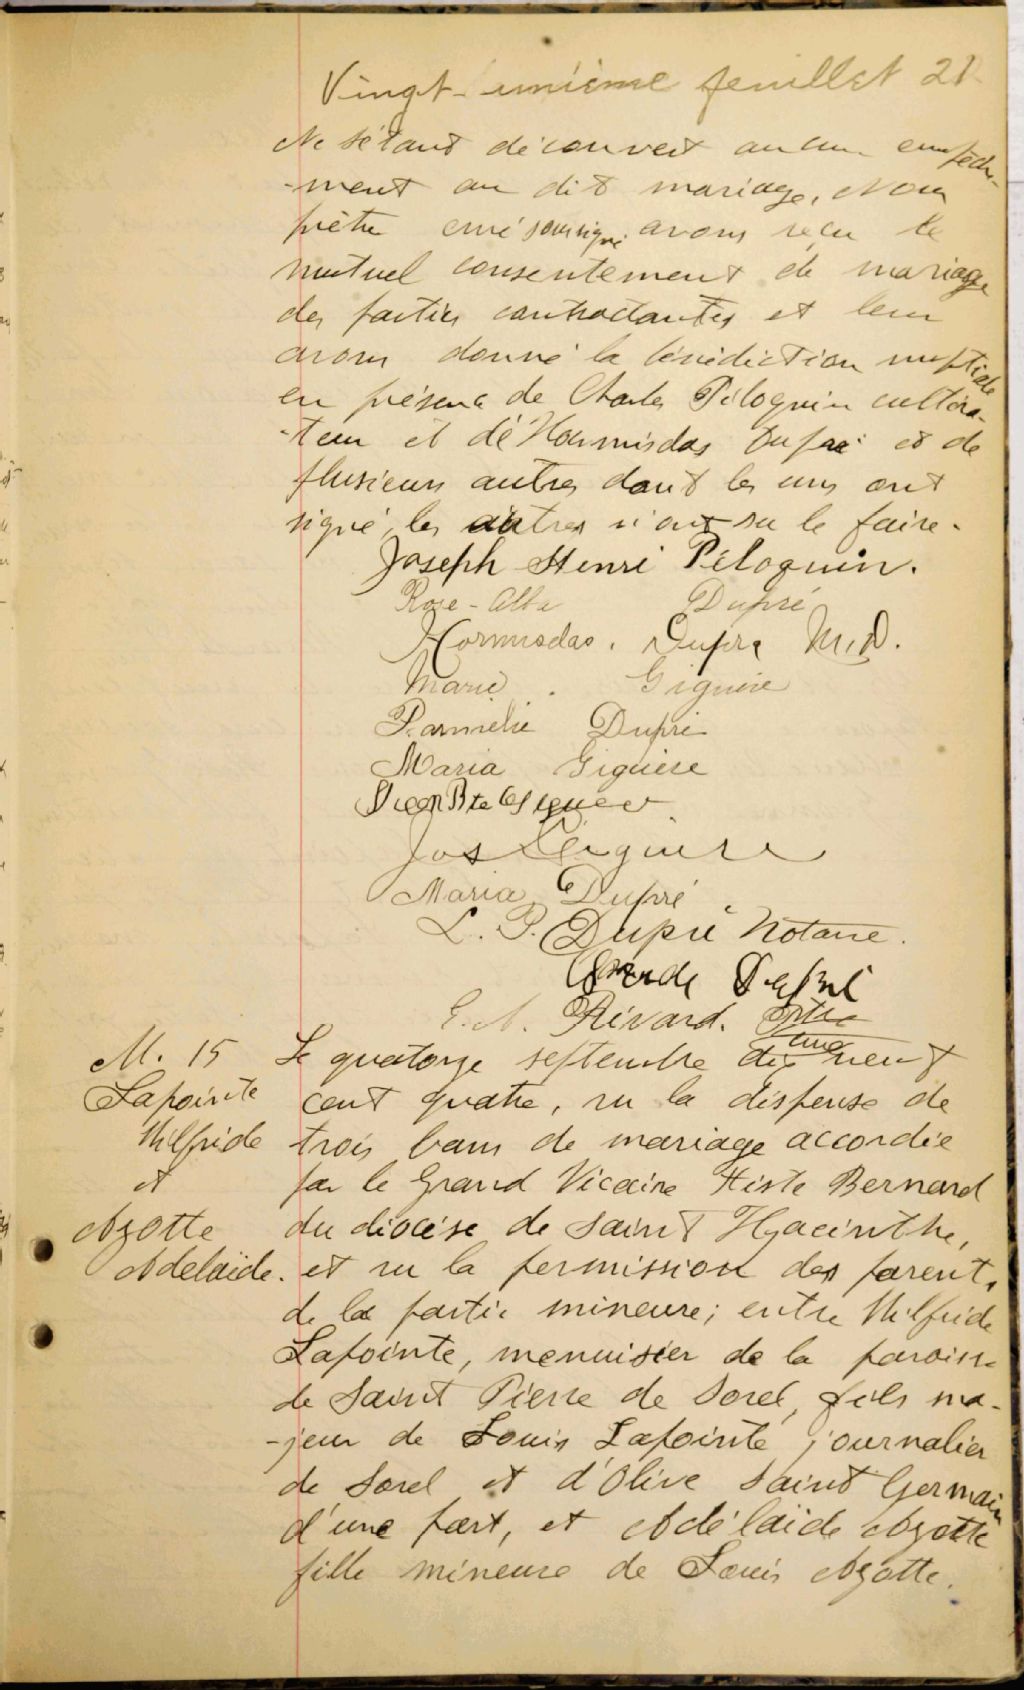 Vingt-unième feuillet 21
Ne s'étant découvert aucun empêche-
-ment au dit mariage, Nous
prêtre curé soussigné avons reçu le
mutuel consentement de mariage
des parties contractantes et leur
avons donné la bénédiction nuptiale
en présence de Charles Péloquin cultiva-
-teur et de Hormisdas Dupré et de
plusieurs autres dont les uns ont
signé, les autres n'ont su le faire.
Joseph Henri Péloquin.
Rose-Alba Dupré
Hormisdas. Dupré M.D.
Marie. Giguère
Parmelie Dupré
Maria Giguère
Jos Giguère
Maria Dupré
L. P. Dupré Notaire.
G. A. Rivard. Ptre
curé
M. 15
Lapointe
Wilfride
et
Azotte
Adelaïde.
Le quatorze septembre dix neuf
cent quatre, vu la dispense de
trois bans de mariage accordée
par le Grand Vicaire Bernard
du diocèse de Saint Hyacinthe,
et vu la permission des parents
de la partie mineure; entre Wilfride
Lapointe, menuisier de la paroisse
de Saint Pierre de Sorel, fils ma-
-jeur de Louis Lapointe journalier
de Sorel et d'Olive Saint Germain
d'une part, et Adélaïde Azotte
fille mineure de Louis Azotte.